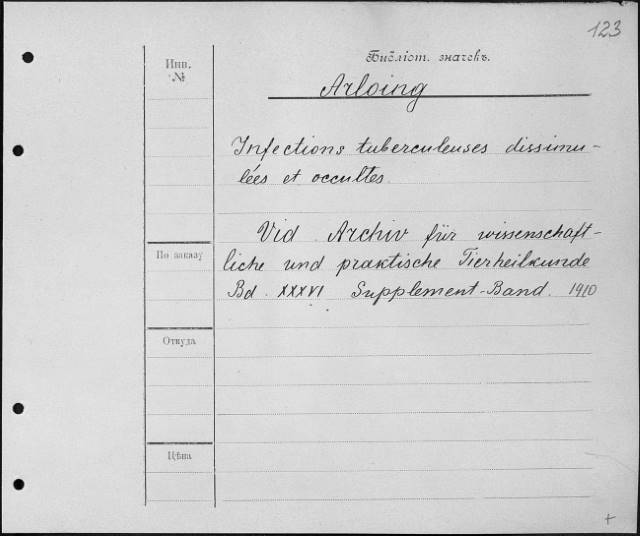 123
Инв.
№
Библіот. значекъ.
Arloing
Infections tuberculeuses dissimu-
lées et occultes.
Vid. Archiv für wissenschaft-
liche und praktische Tierheilkunde
Bd. XXXVI Supplement-Band. 1910
По заказу
Откуда
Цѣна
+